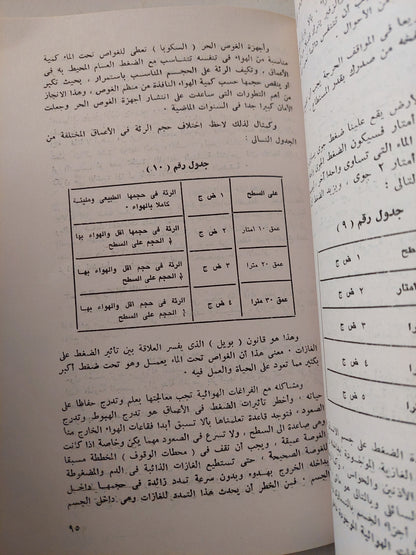 وأجهزة الغوص الحر ( السكوبا ) تعطى للغواص تحت الماء كمية
مناسبة من الهواء فى تنفسه تتناسب مع الضغط العام المحيط به فى
الأعماق ، وتكيف الرئة على الحجم المناسب باستمرار ، بحيث تكبر
أو ينقص حجمها حسب كمية الهواء النافذة من منظم الغوص ، وهذا الانجاز
من أهم التطورات التى ساعدت على انتشار أجهزة الغوص الحر وجعلت
الأمان كبيرا جدا فى السنوات الماضية .
وكمثال لذلك لاحظ اختلاف حجم الرئة فى الأعماق المختلفة من
الجدول التالى :
جدول رقم ( ١٠ )
على السطح
١ ض ج
الرئة فى حجمها الطبيعى ومليئة
كاملا بالهواء .
عمق ١٠ امتار
٢ ض ج
الرئة فى حجمها اقل والهواء بها
الحجم على السطح
عمق ٢٠ مترا
٣ ض ج
الرئة فى حجمها اقل والهواء بهـا
الحجم على السطح
عمق ٣٠ مترا
٤ ض ج
الرئة فى حجمها اقل والهواء بهـا
الحجم على السطح
وهذا هو قانون ( بويل ) الذى يفسر العلاقة بين تأثير الضغط على
الغازات . معنى هذا أن الغواص تحت الماء يعمل وهو تحت ضغط أكبر
بكثير مما تعود على الحياة والعمل فيه .
ومشاكله مع الفراغات الهوائية تجب معالجتها بعلم وتدرج حفاظا على
حياته ، وأخطر تأثيرات الضغط فى الأعماق هو تدرج الهبوط وتدرج
الصعود ، فتوجد قاعدة تعلمناها بألا تسبق أبدا فقاعات الهواء الخارج منا
وهى صاعدة الى السطح ، ولا تسرع فى الصعود مهما يكن وخاصة اذا كانت
الغوصة عميقة ، ويجب أن نقف فى ( محطات الوقوف ) المخططة مسبقا
للغوصة الصحيحة ، حتى تستطيع الغازات الذائبة فى الدم والمضغوطة
بداخله الخروج بهدوء وبدون سرعة تمدد زائدة فى حجمها داخل
الجسم . فمن الخطر أن يحدث هذا التمدد للغازات وهى داخل الجسم
٩٥
جدول رقم ( ٩ )
١ ض ج
٢ ض ج
٣ ض ج
٤ ض ج
٥ ض ج